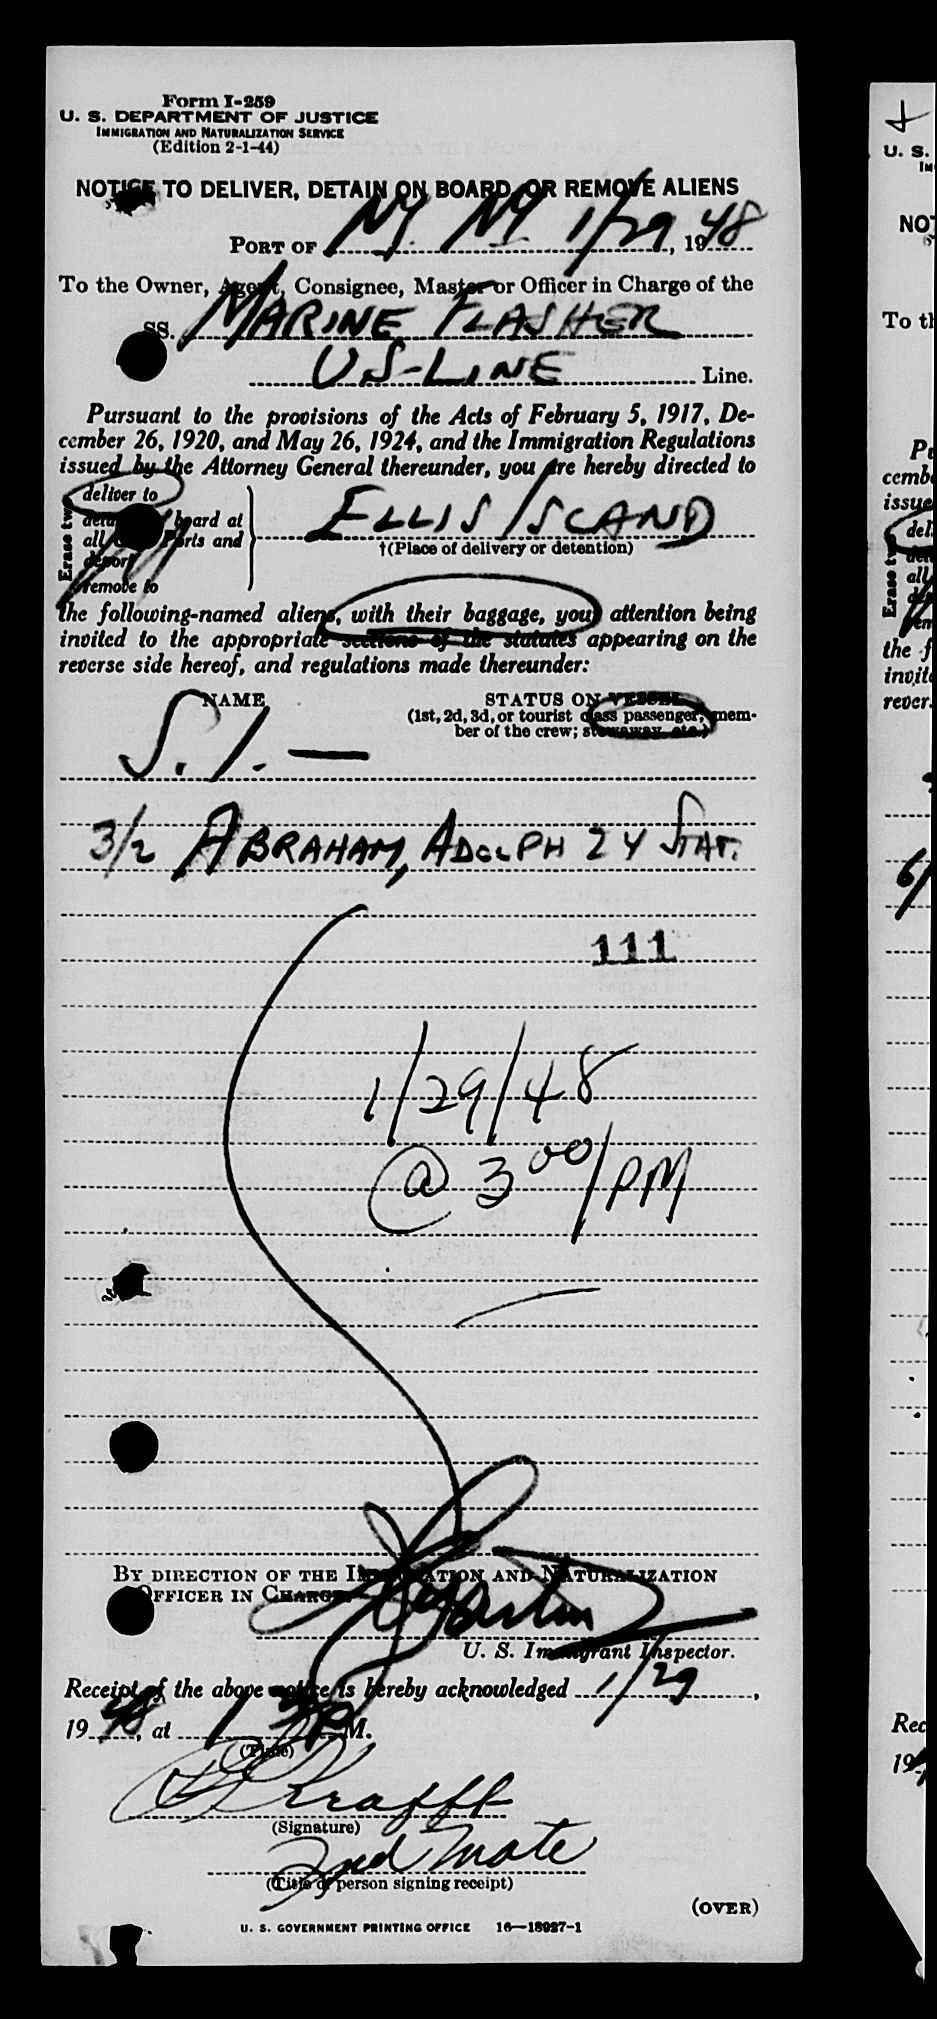 Form I-259
U. S. DEPARTMENT OF JUSTICE
IMMIGRATION AND NATURALIZATION SERVICE
(Edition 2-1-44)
NOTICE TO DELIVER, DETAIN ON BOARD, OR REMOVE ALIENS
PORT OF NY NY 1/29, 1948
To the Owner, Agent, Consignee, Master or Officer in Charge of the
SS. MARINE FLASHER
US-LINE Line.
Pursuant to the provisions of the Acts of February 5, 1917, De-
cember 26, 1920, and May 26, 1924, and the Immigration Regulations
issued by the Attorney General thereunder, you are hereby directed to
Erase two
deliver to
board at
all Ports and
deport
remove to
ELLIS ISLAND
†(Place of delivery or detention)
the following-named aliens, with their baggage, your attention being
invited to the appropriate sections of the statutes appearing on the
reverse side hereof, and regulations made thereunder:
NAME STATUS ON VESSEL
(1st, 2d, 3d, or tourist class passenger, mem-
ber of the crew; stowaway, etc.)
S. I. —
3/2 ABRAHAM, ADOLPH 24 STAT.
111
1/29/48
@ 3 00/PM
BY DIRECTION OF THE IMMIGRATION AND NATURALIZATION
OFFICER IN CHARGE.
U. S. Immigrant Inspector.
Receipt of the above notice is hereby acknowledged 1/29,
1948, at 1 P M.
(Time)
Krafft
(Signature)
2nd Mate
(Title of person signing receipt)
(OVER)
U. S. GOVERNMENT PRINTING OFFICE 16—18927-1
U. S.
NOT
To th
cemb
issue
Erase tw
del
all
the f
invit
rever
6/
Rec
19